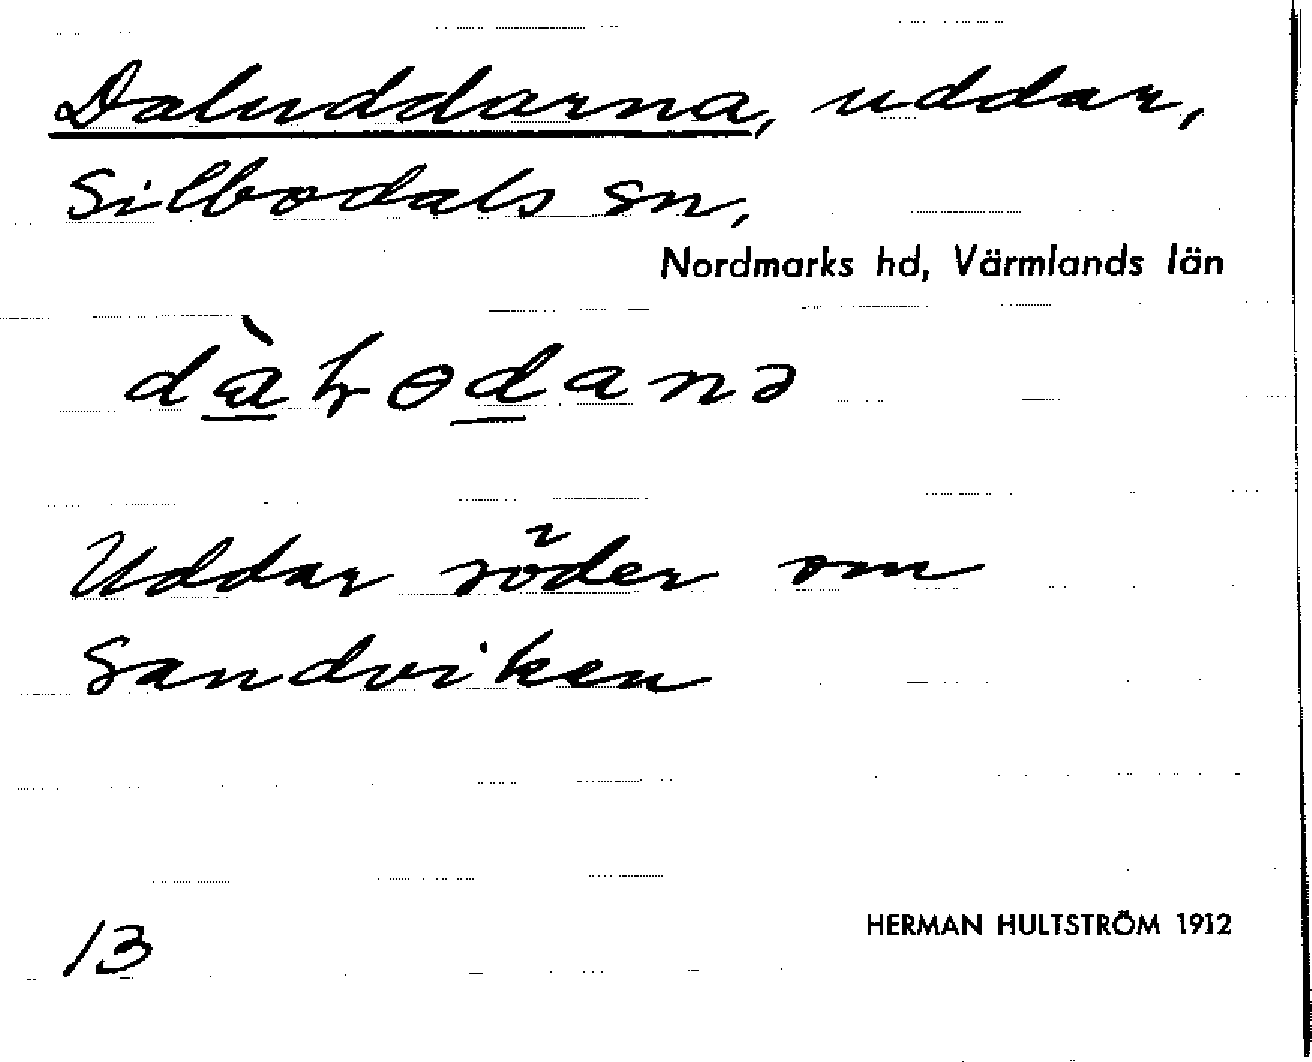 Daluddarna, uddar,
Silbodals sn,
Nordmarks hd, Värmlands län
Uddar söder om
Sandviken
13
HERMAN HULTSTRÖM 1912